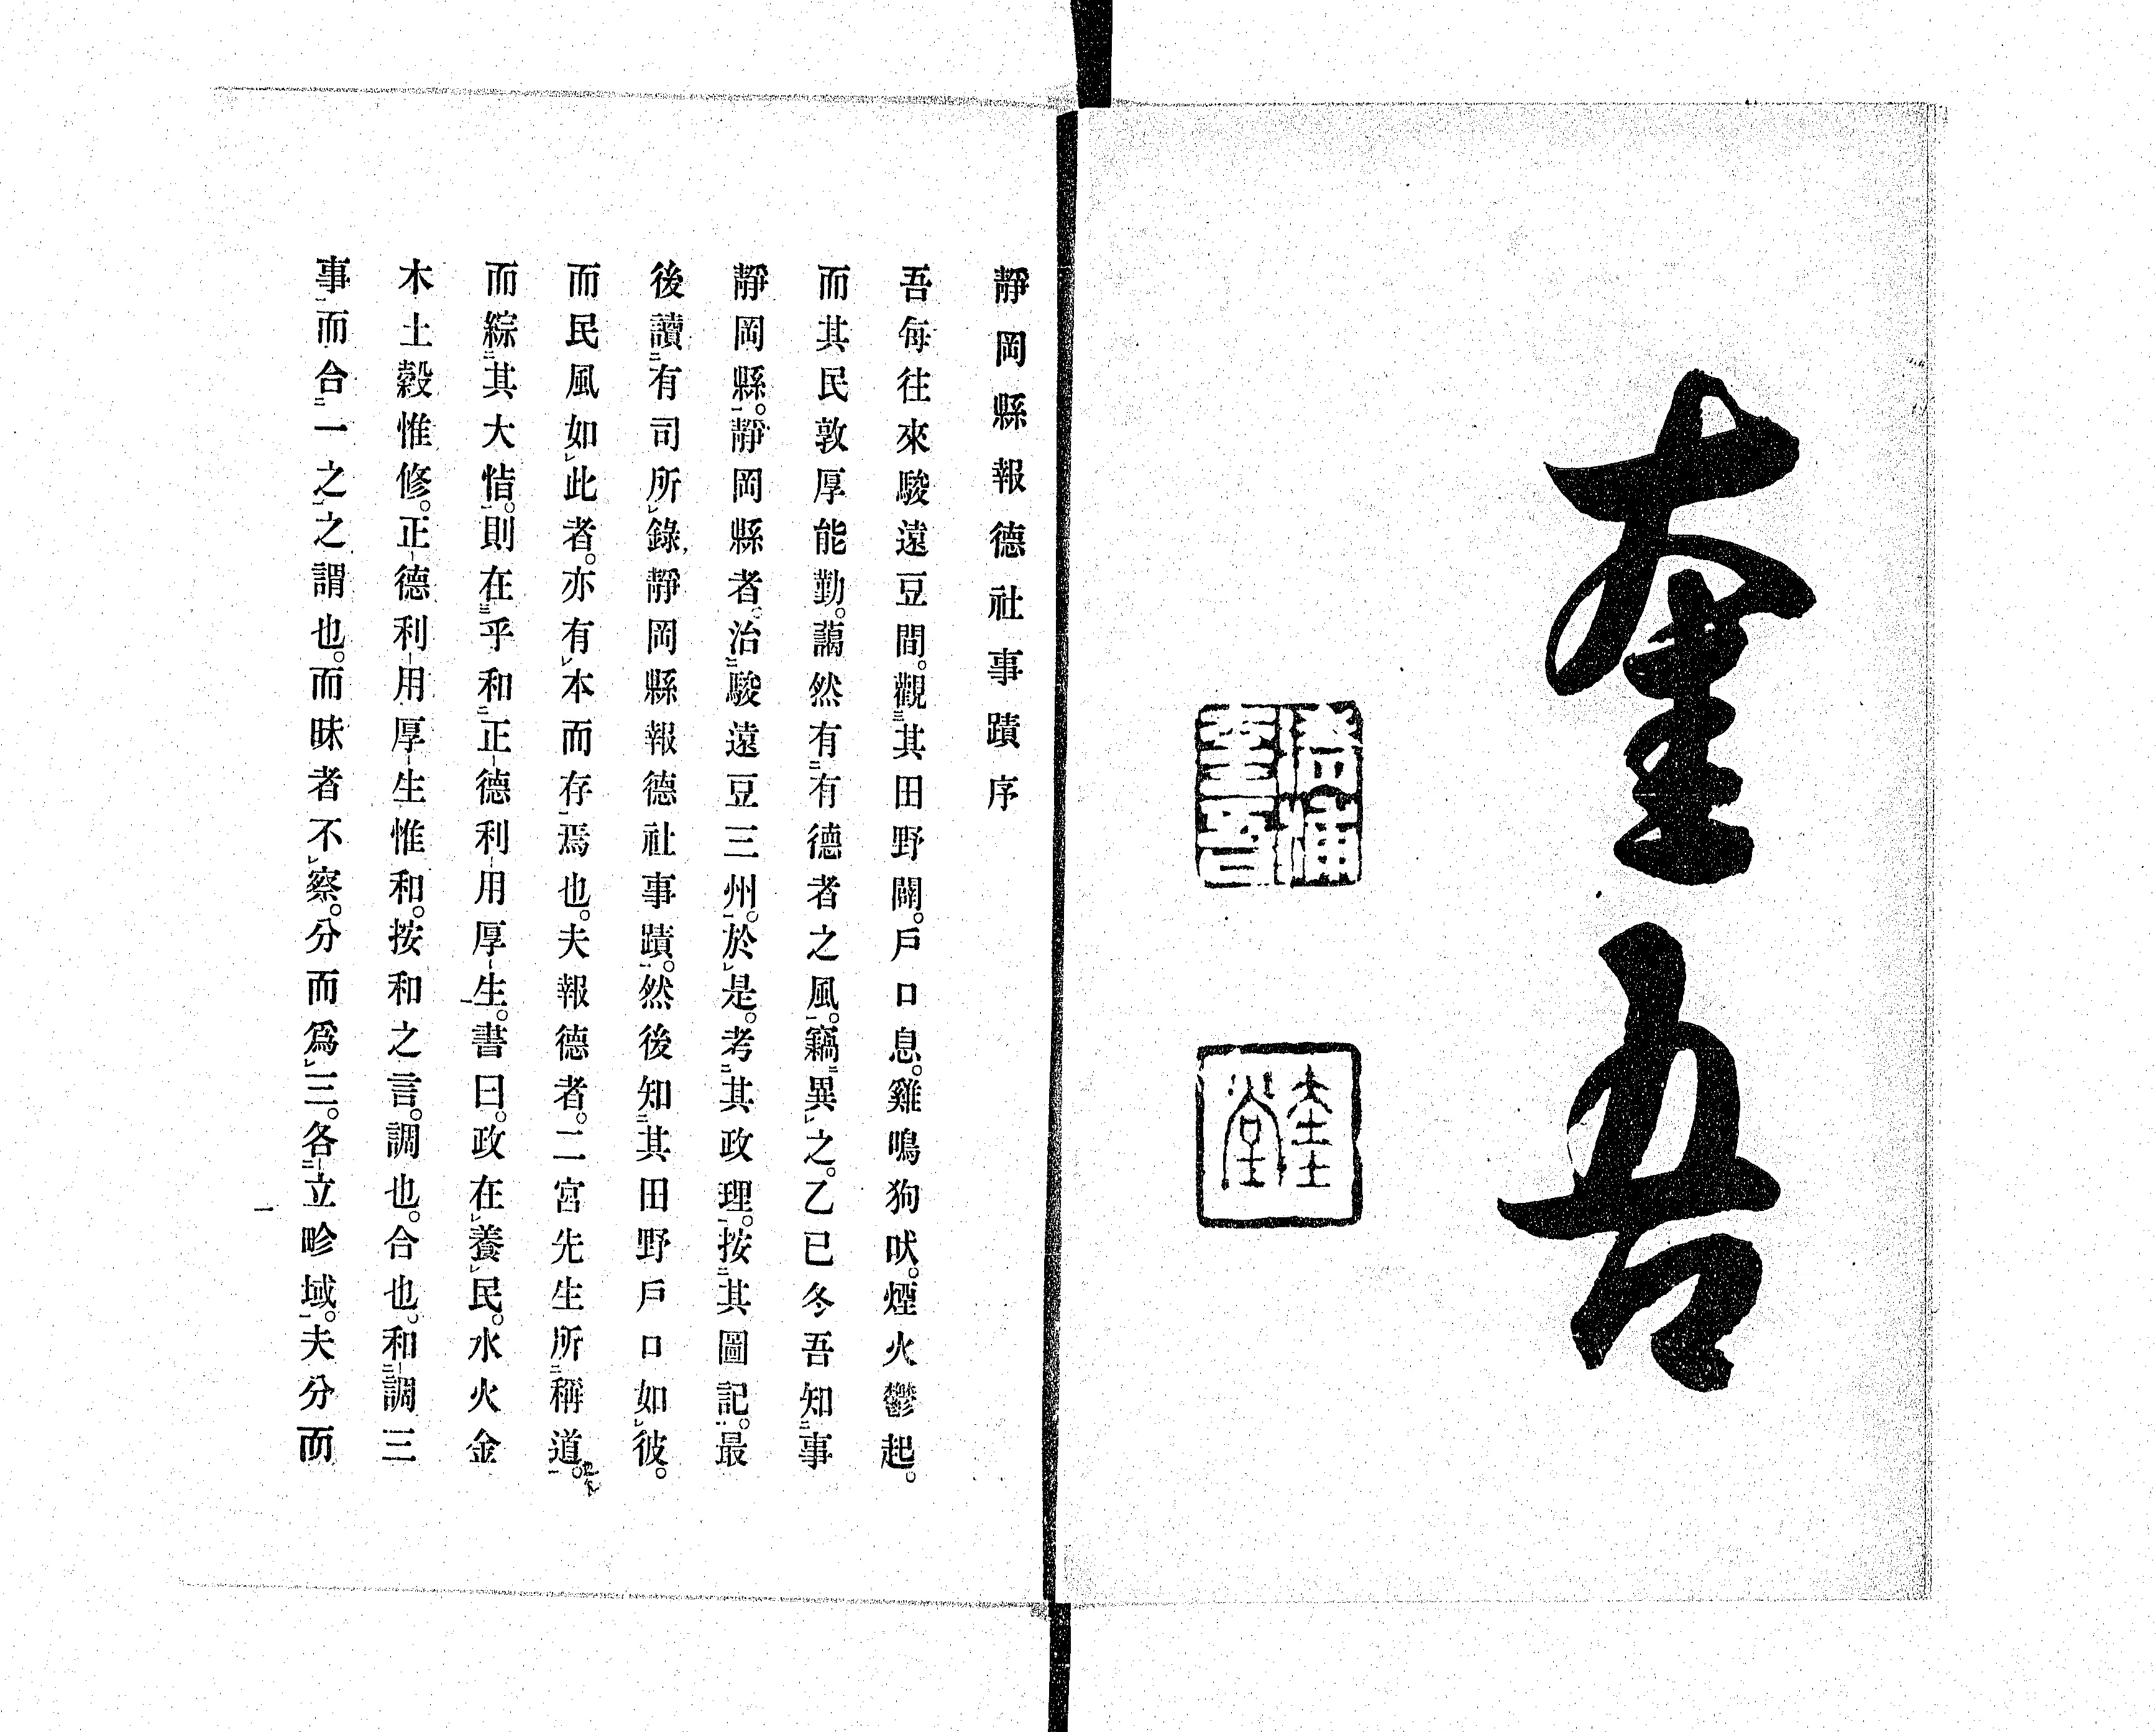 奎吾
奎堂
靜岡縣報德社事蹟序
吾每往來駿遠豆間。觀其田野闢。戶口息。雞鳴狗吠。煙火鬱起。
而其民敦厚能勤。藹然有有德者之風。竊異之。乙巳冬吾知事
靜岡縣。靜岡縣者。治駿遠豆三州。於是。考其政理。按其圖記。最
後讀有司所錄靜岡縣報德社事蹟。然後知其田野戶口如彼。
而民風如此者。亦有本而存焉也。夫報德者。二宮先生所稱道。
而綜其大恉。則在乎和正德利用厚生。書曰。政在養民。水火金
木土穀惟修。正德利用厚生惟和。按和之言。調也。合也。和調三
事而合一之之謂也。而昧者不察。分而爲三。各立畛域。夫分而
一